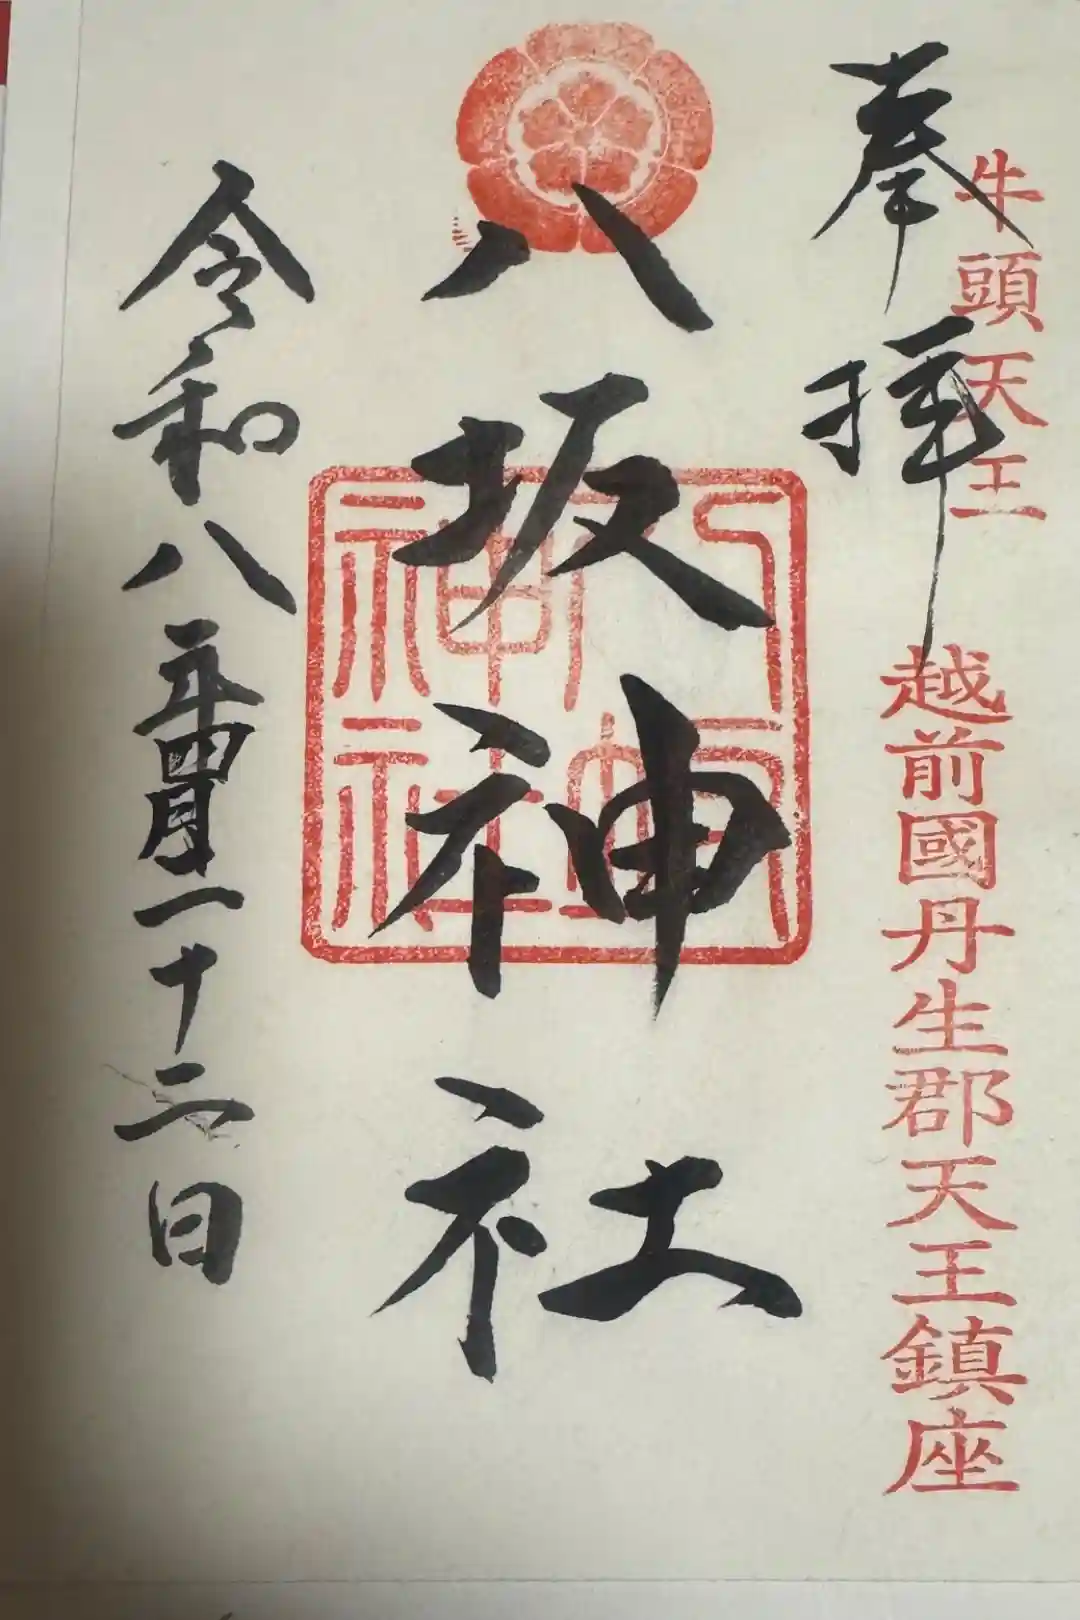 牛頭天王
奉拝
越前國丹生郡天王鎮座
八坂神社
八坂
神社
令和八年四月二十二日